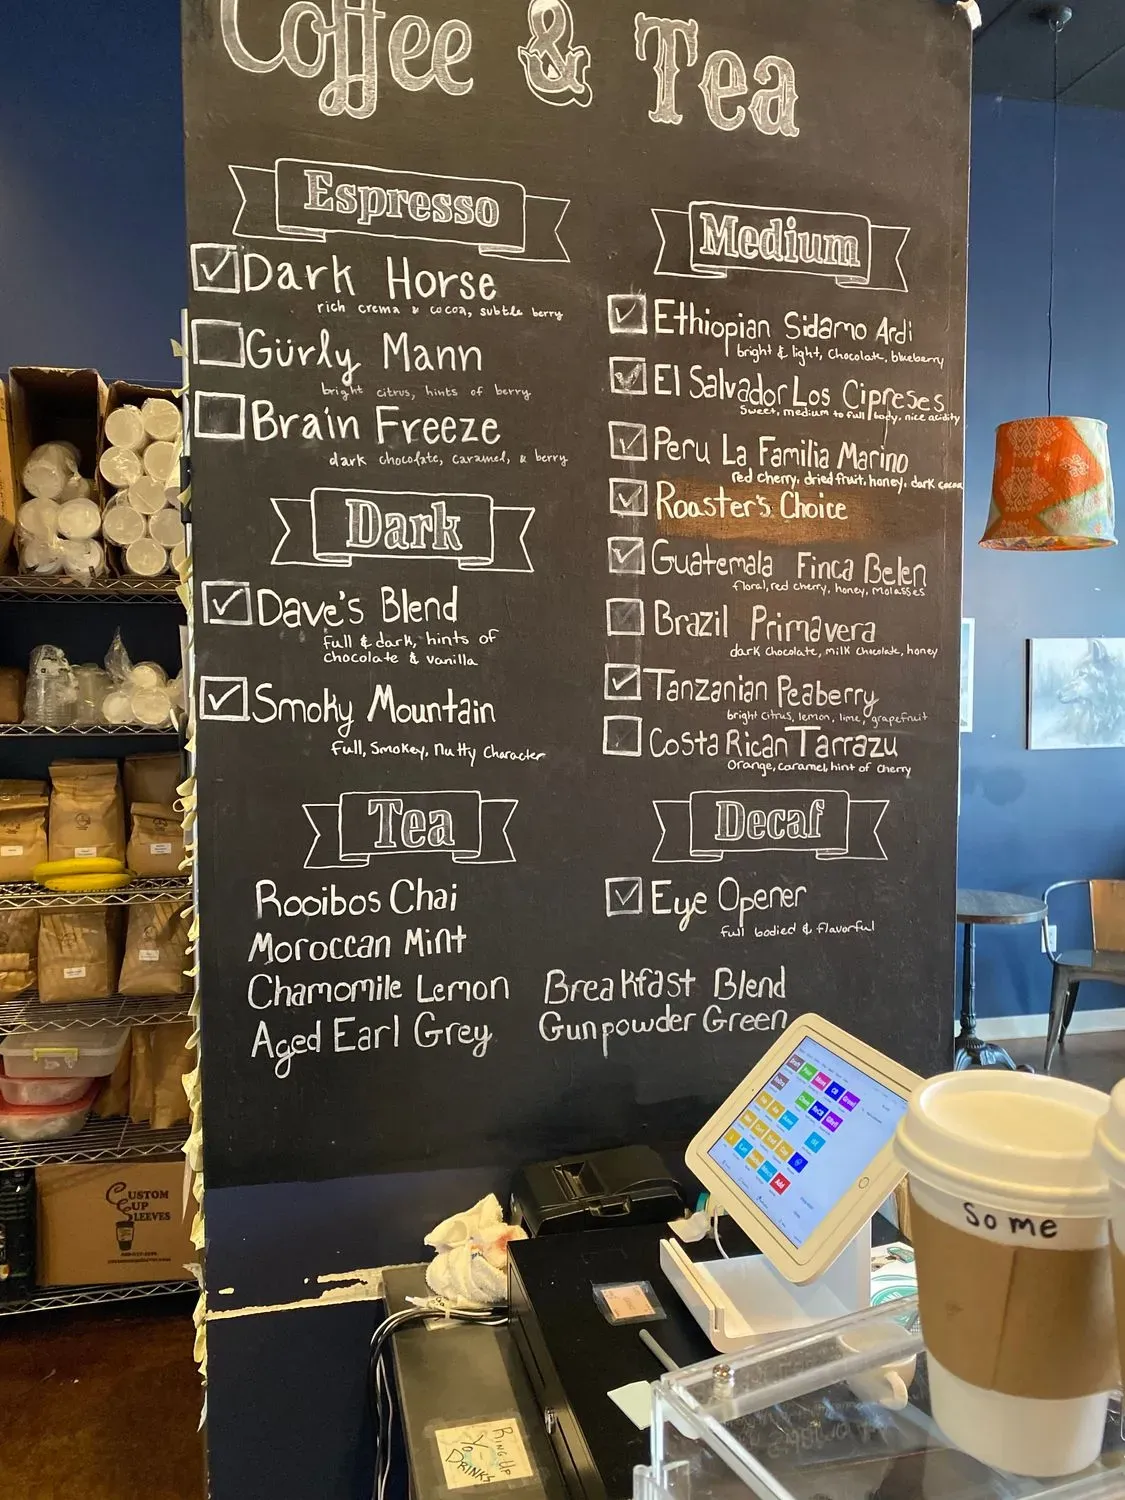 Coffee & Tea
Espresso
Dark Horse
rich crema & cocoa, subtle berry
Gürly Mann
bright citrus, hints of berry
Brain Freeze
dark chocolate, caramel, & berry
Dark
Dave's Blend
full & dark, hints of
chocolate & vanilla
Smoky Mountain
full, smokey, nutty character
Tea
Rooibos Chai
Moroccan Mint
Chamomile Lemon
Aged Earl Grey
Breakfast Blend
Gunpowder Green
Medium
Ethiopian Sidamo Ardi
bright & light, chocolate, blueberry
El Salvador Los Cipreses
sweet, medium to full body, nice acidity
Peru La Familia Marino
red cherry, dried fruit, honey, dark cocoa
Roaster's Choice
Guatemala Finca Belen
floral, red cherry, honey, molasses
Brazil Primavera
dark chocolate, milk chocolate, honey
Tanzanian Peaberry
bright citrus, lemon, lime, grapefruit
Costa Rican Tarrazu
orange, caramel, hint of cherry
Decaf
Eye Opener
full bodied & flavorful
Custom
Cup
Sleeves
Some
Ring Up
Yo
Drinks